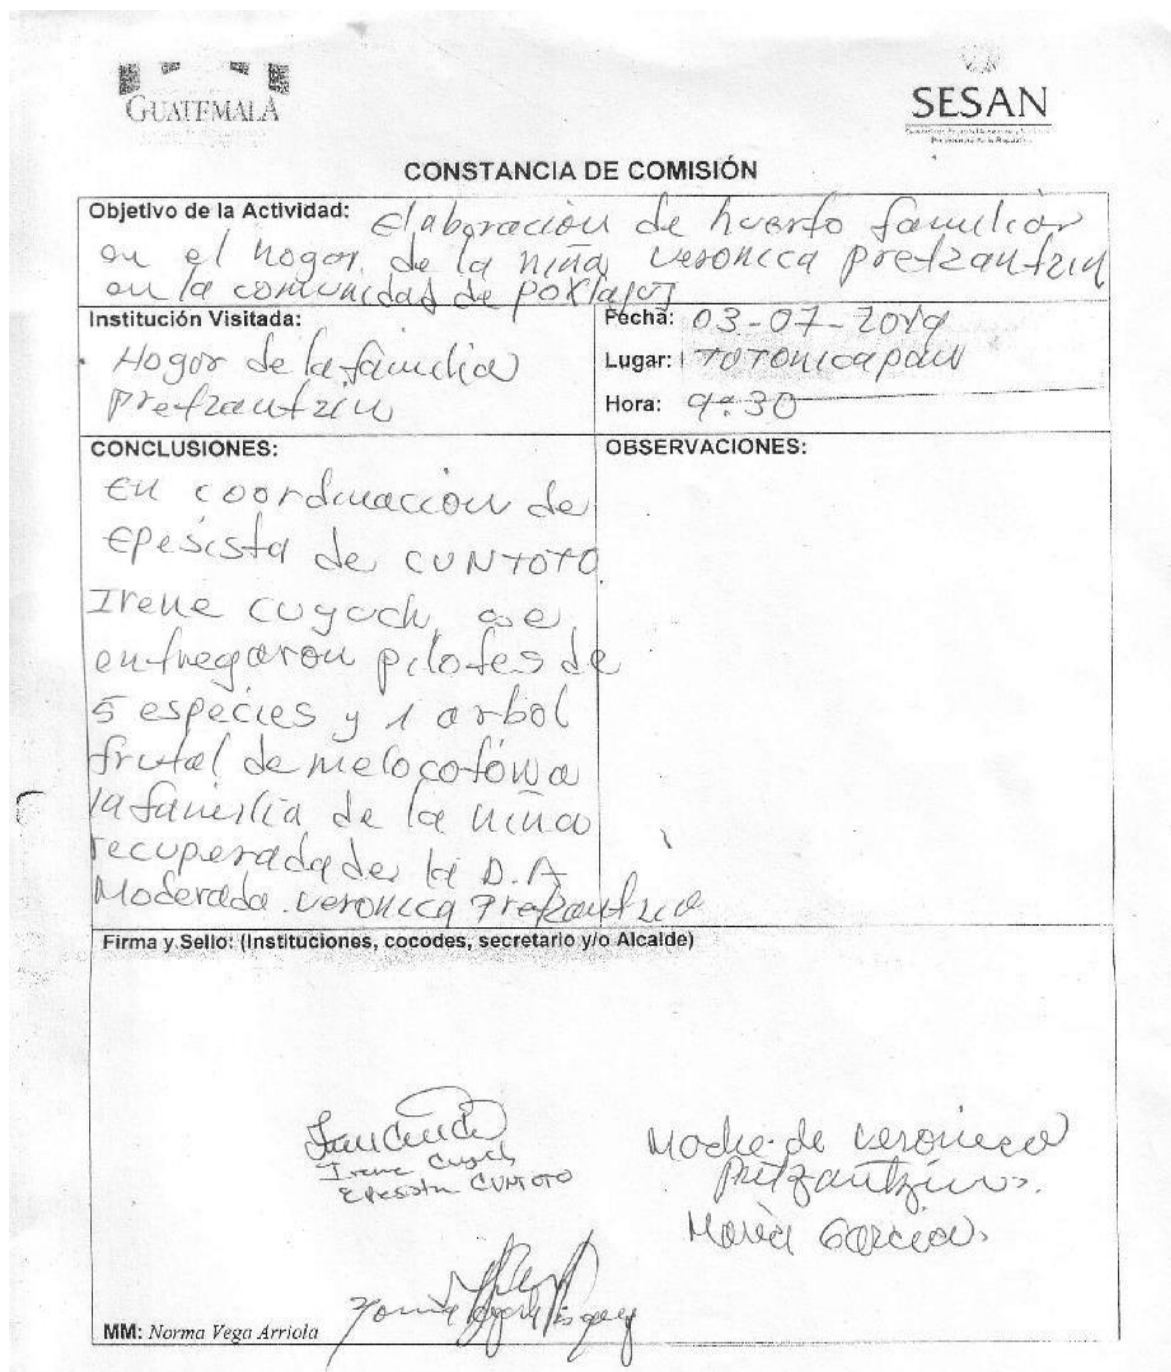 GUATEMALA
SESAN
CONSTANCIA DE COMISIÓN
Objetivo de la Actividad: Elaboración de huerto familiar
en el hogar de la niña Veronica Pretzantzin
en la comunidad de Poxlajuj
Institución Visitada:
Hogar de la familia
Pretzantzin
Fecha: 03-07-2019
Lugar: Totonicapan
Hora: 9:30
CONCLUSIONES:
En coordinacion de
Epesista de CUNTOTO
Irene Cuyuch, se
entregaron pilotes de
5 especies y 1 arbol
frutal de melocotón a
la familia de la niña
recuperada de la D.A
Moderada. Veronica Pretzantzin
OBSERVACIONES:
Firma y Sello: (Instituciones, cocodes, secretario y/o Alcalde)
Irene Cuyuch
Epesista CUNTOTO
Madre de Veronica
Pretzantzin.
Maria Garcia.
MM: Norma Vega Arriola